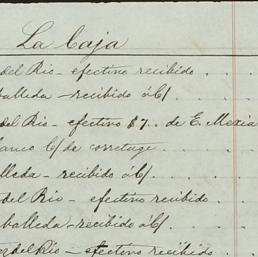 La Caja
del Rio - efectivo recibido
balleda - recibido á C/
del Rio - efectivo $7.. de E. Mexia
anco C/ de corretage
lleda - recibido á C/
del Rio - efectivo recibido
balleda - recibido á C/
del Rio - efectivo recibido